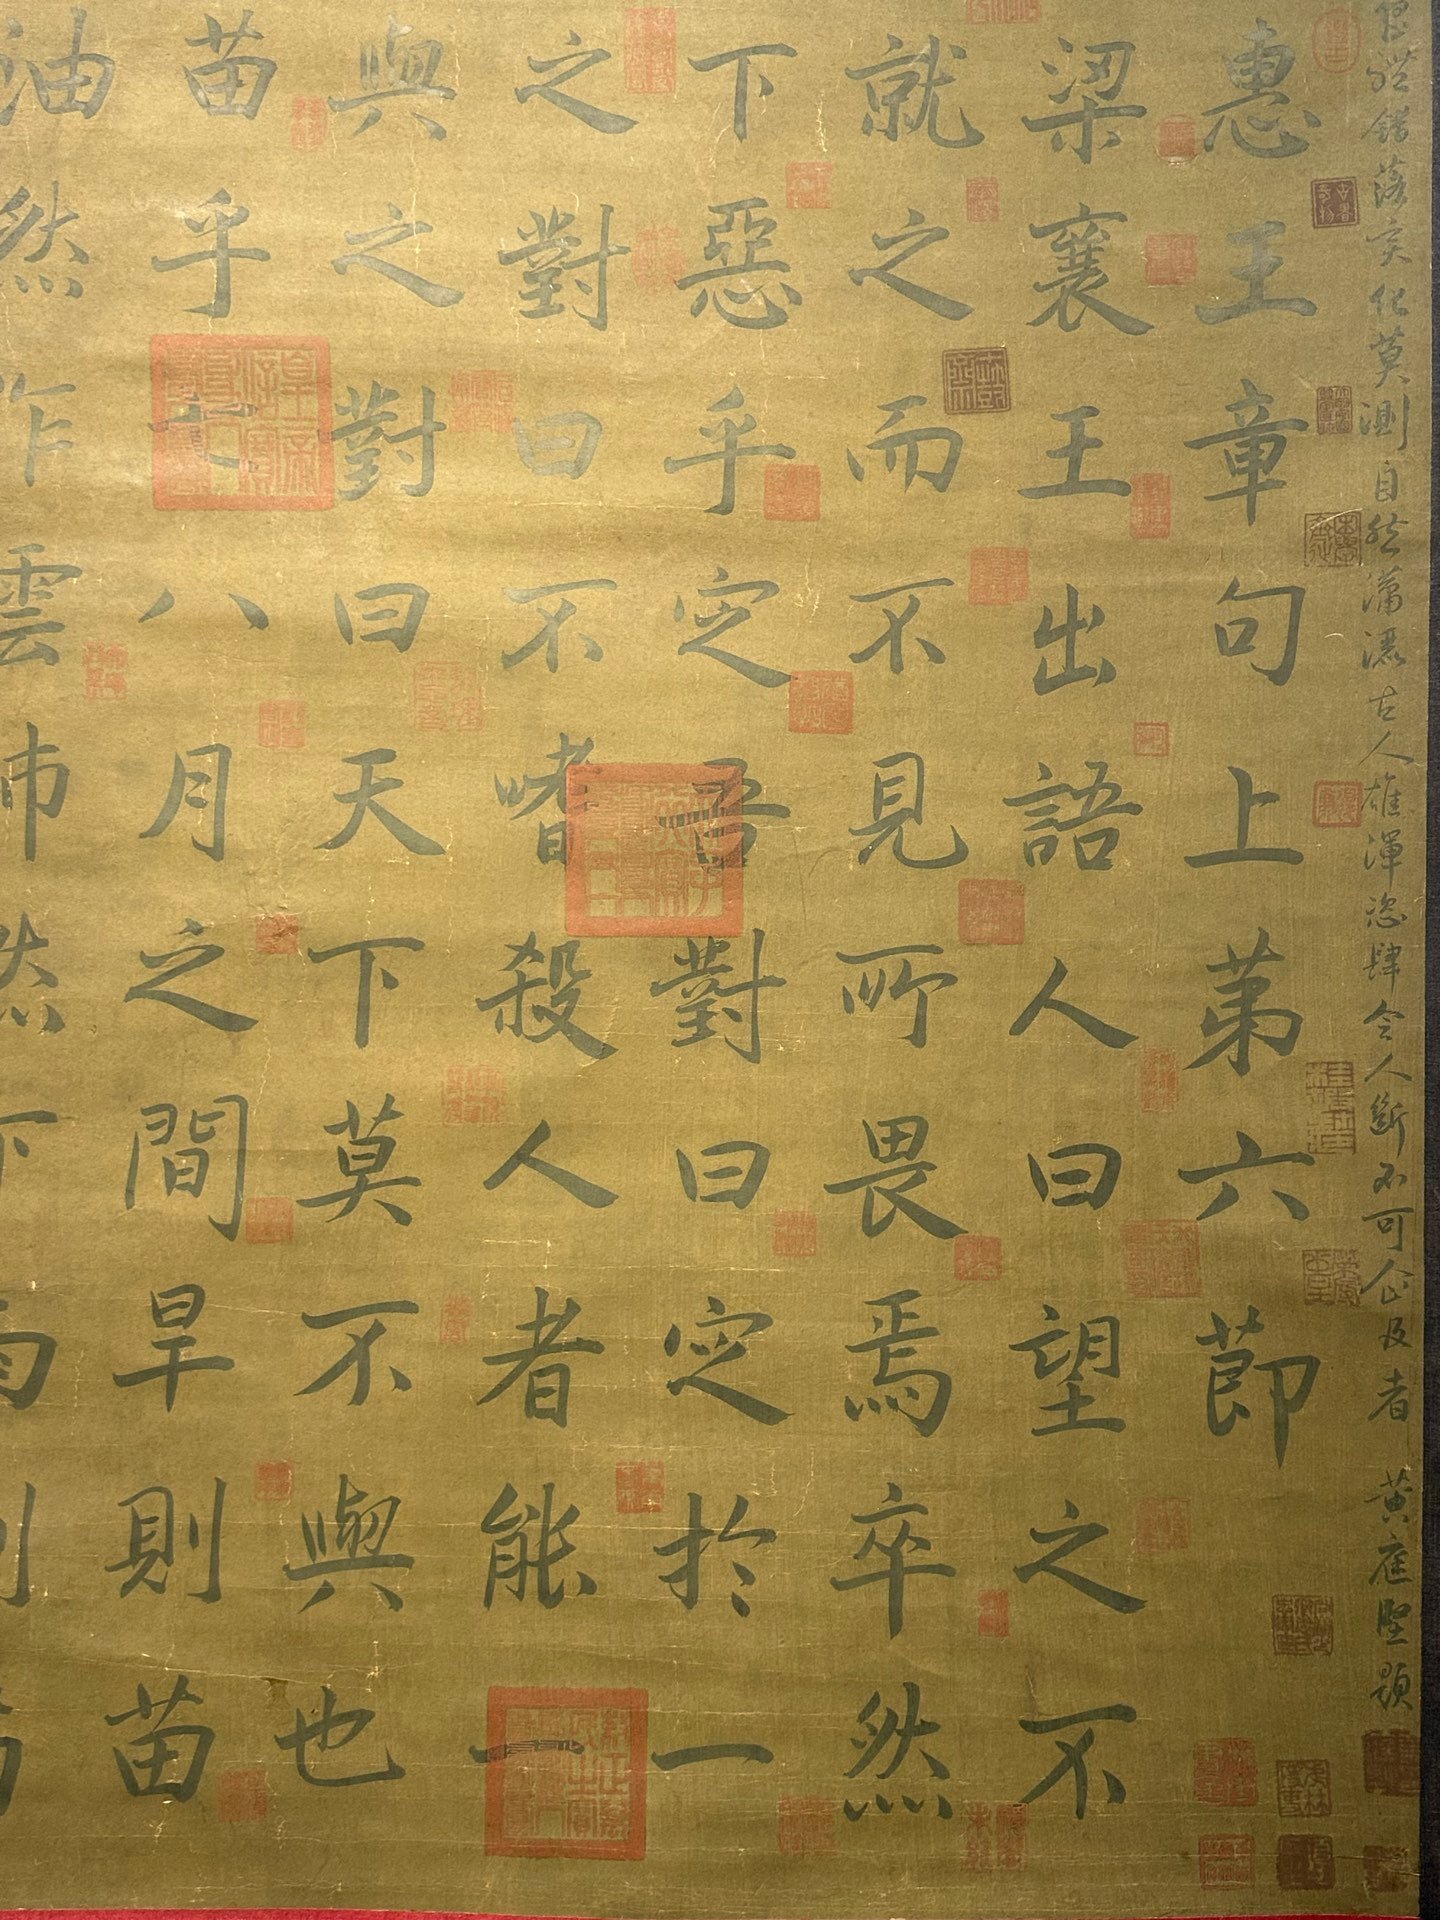 體錯落変化莫測自然瀟灑古人雄渾恣肆令人斷不可企及者 黃庭堅題
惠王章句上苐六莭
梁襄王出語人曰望之不
就之而不見所畏焉卒然
下惡乎定吾對曰定於一
之對曰不嗜殺人者能一
與之對曰天下莫不與也
苗乎七八月之間旱則苗
油然作雲沛然下雨則苗